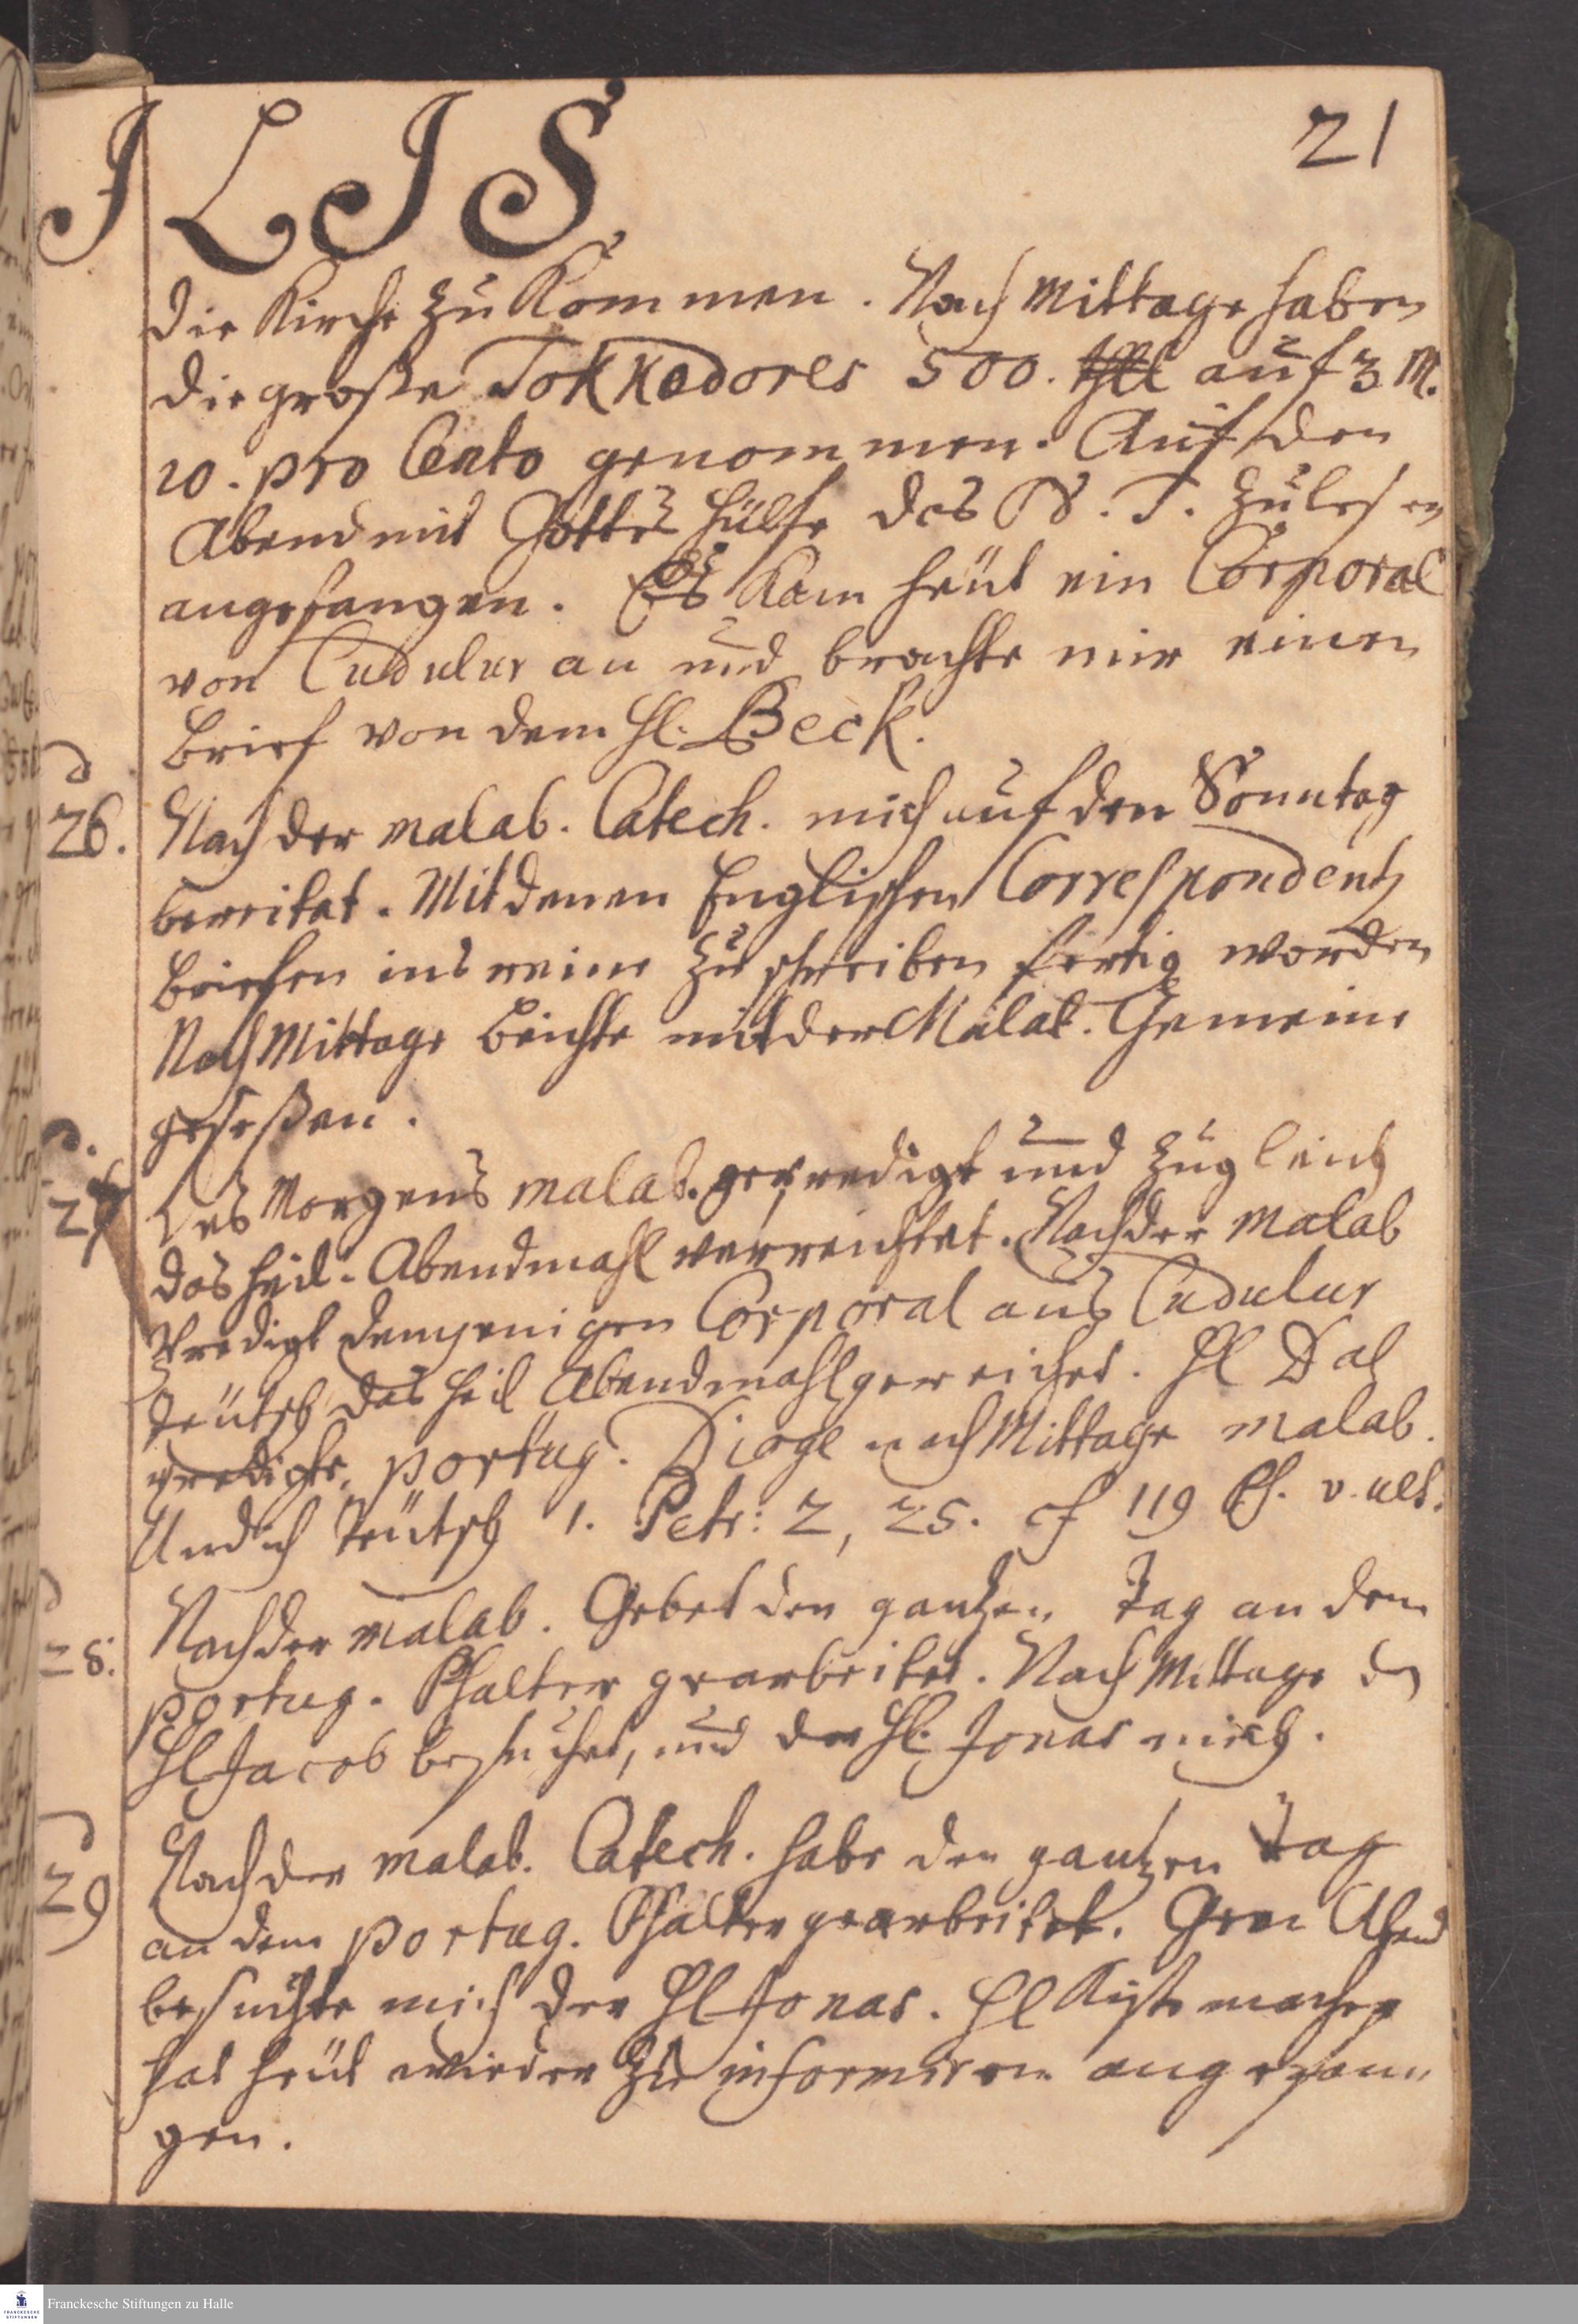 I LIS
21
die Kirche zu kommen. Nach Mittage haben
die große Tokkadores 500. auf 3 M.
10. pro Cento genommen. Auf den
Abend mit Gottes hülfe das N. T. zu lesen
angefangen. Es kam heut ein Corporal
von Cudulur an und brachte mir einen
Brief von dem H. Beck.
26. Nach der malab. Catech. mich auf den Sonntag
bereitet. Mit denen Englischen Correspondentz
Briefen ins reine zu schreiben fertig worden
Nach Mittage Beichte mit der Malab. Gemeine
geseßen.
27 Des Morgens malab. geprediget und zugleich
das heil. Abendmahl verrichtet. Nach der Malab
Predigt demjenigen Corporal aus Cudulur
teütsch das heil Abendmahl gereichet. H Dal
predigte portug. Diogo nach Mittage malab.
Und ich teütsch 1. Petr: 2, 25. cf 119 Ps. v. ult.
28. Nach der malab. Gebet den gantzen Tag an dem
portug. Psalter gearbeitet. Nach Mittage den
H Jacob besuchet, und der H. Jonas mich.
29 Nach der malab. Catech. habe den gantzen Tag
an dem portug. Psalter gearbeitet. Gen Abend
besuchte mich der H Jonas. H Kistenmacher
hat heut wieder zu informiren angefan
gen.
Franckesche Stiftungen zu Halle